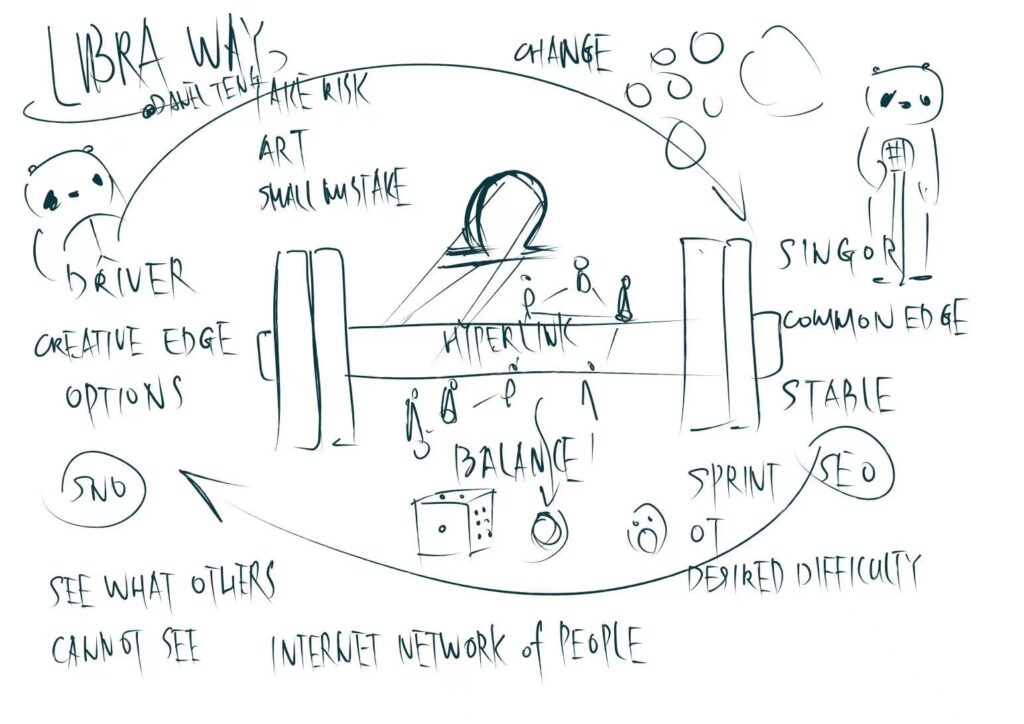 LIBRA WAY
@DANIEL TENG
TAKE RISK
ART
SMALL MISTAKE
CHANGE
DRIVER
CREATIVE EDGE
OPTIONS
SNO
SEE WHAT OTHERS
CANNOT SEE
HYPERLINK
BALANCE!
SINGOR
COMMON EDGE
STABLE
SEO
SPRINT
OT
DESIRED DIFFICULTY
INTERNET NETWORK of PEOPLE